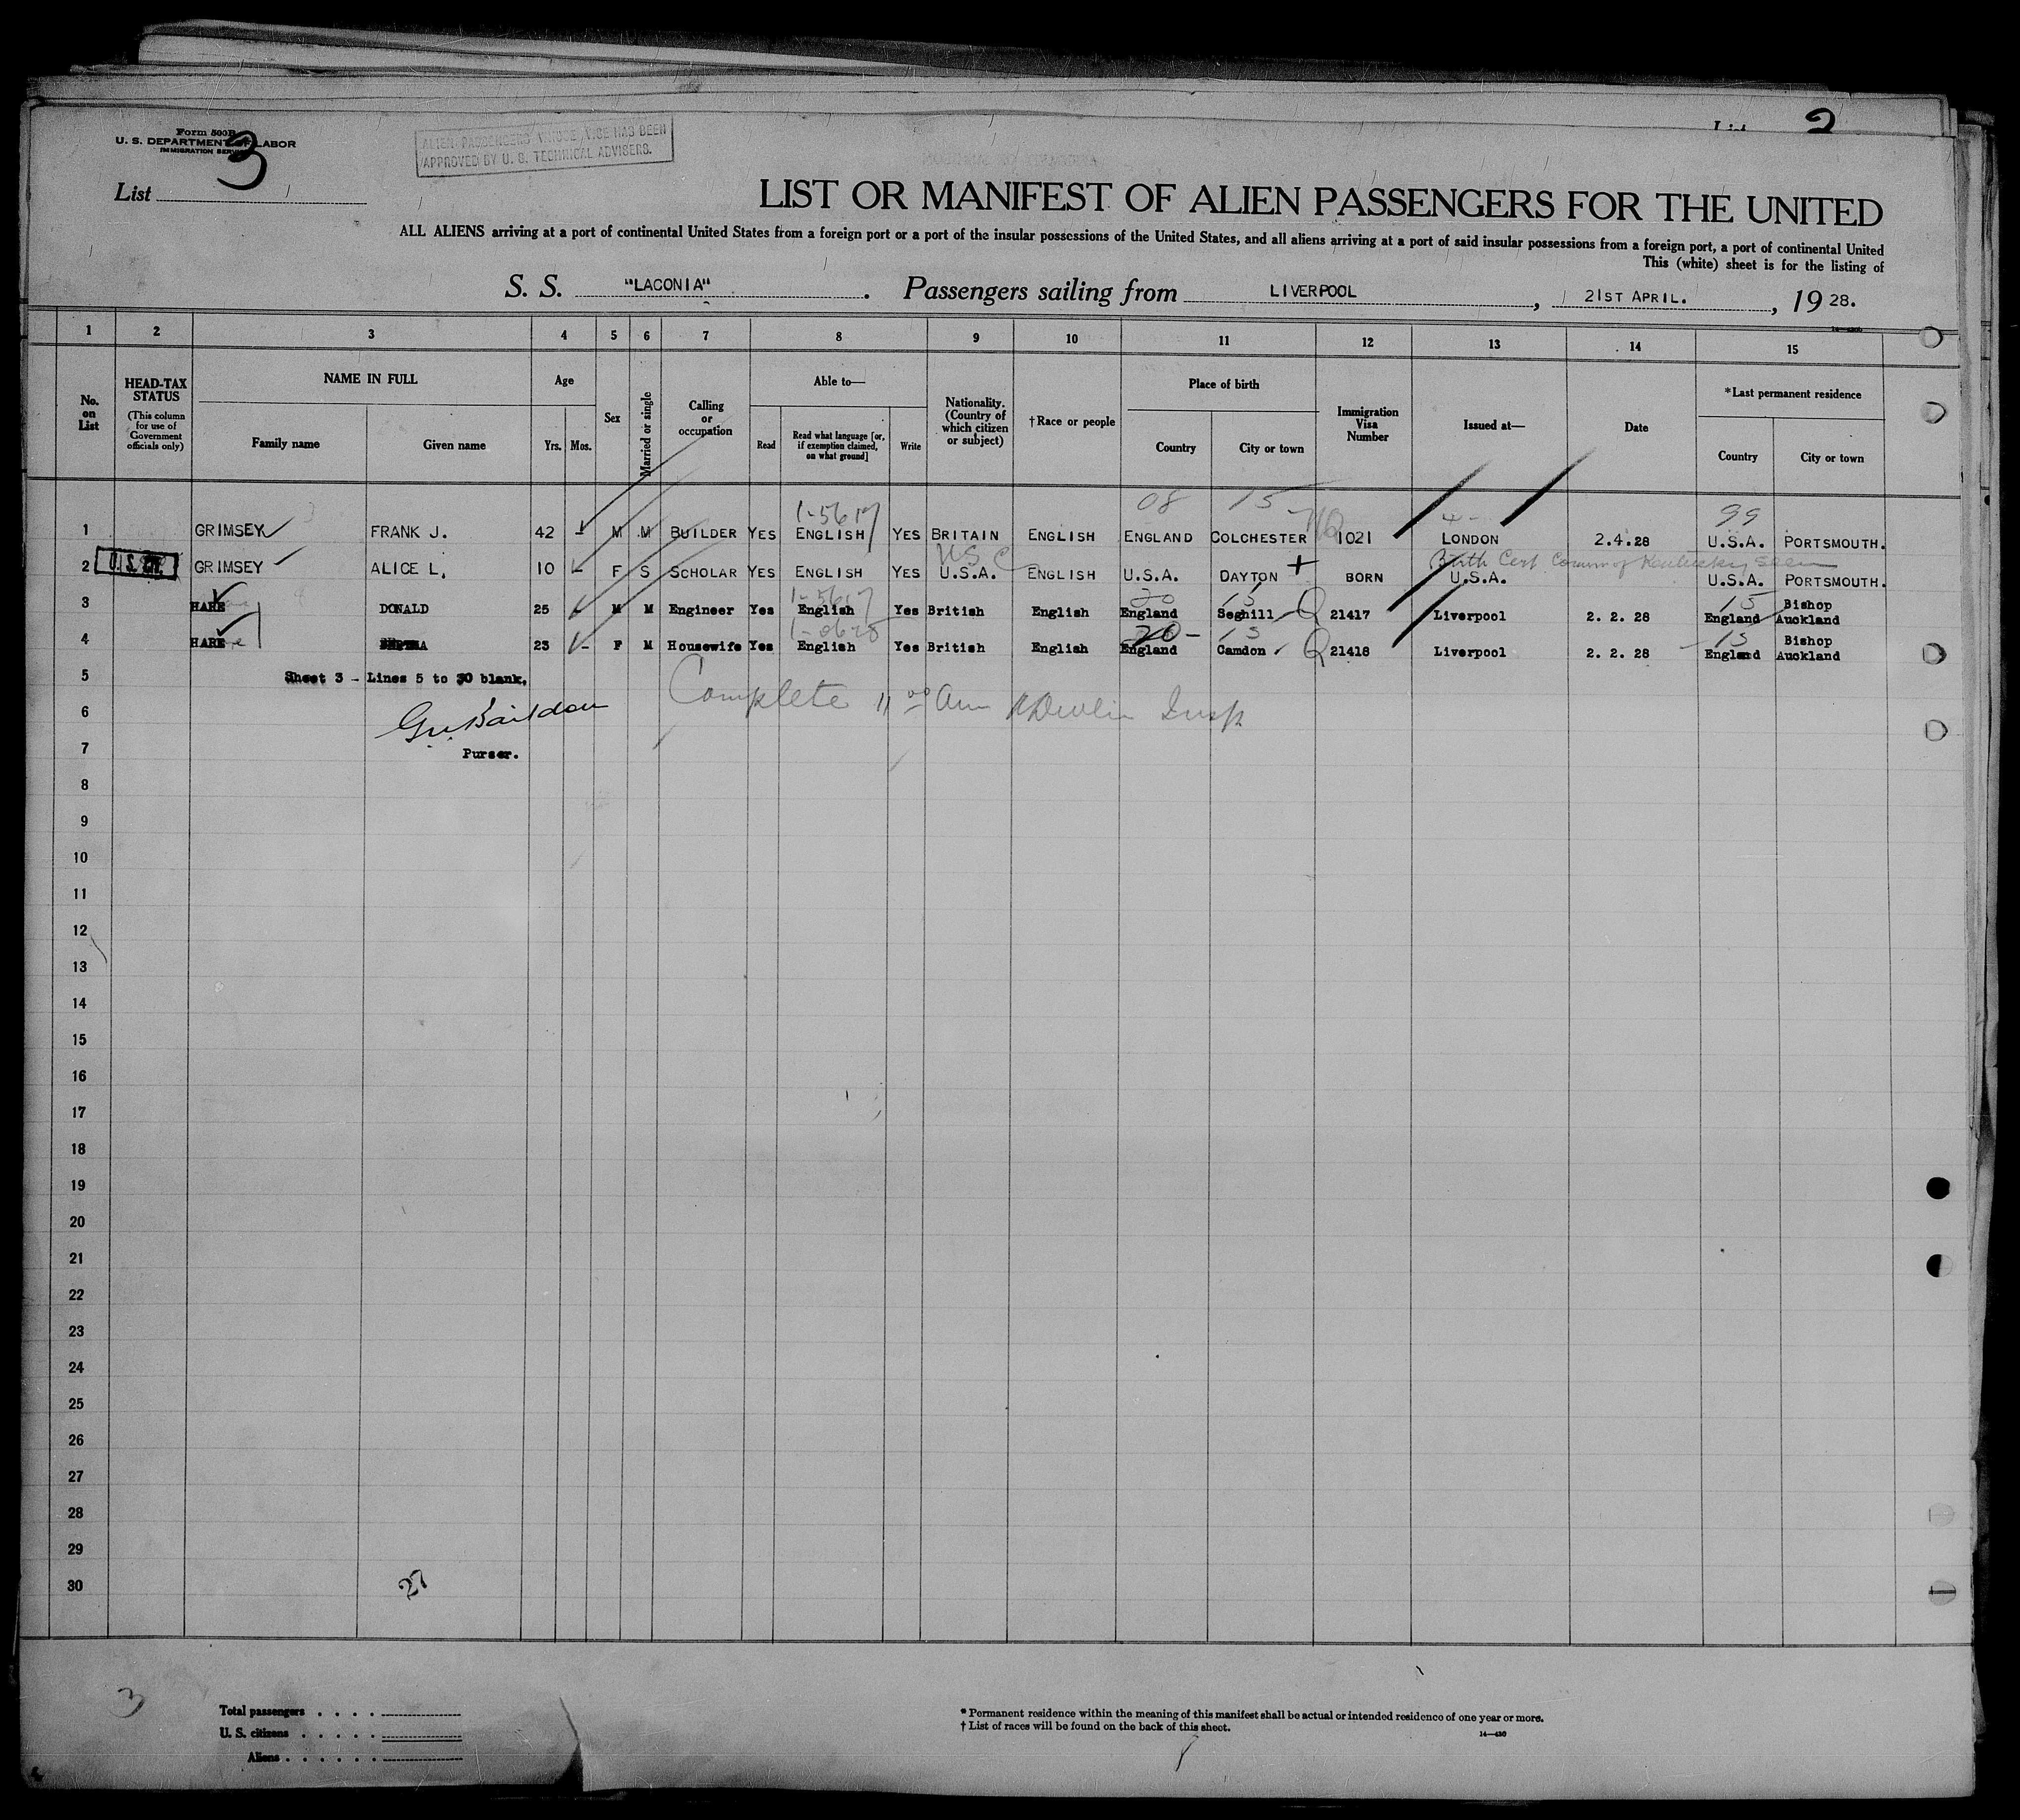 Form 500B
U. S. DEPARTMENT OF LABOR
IMMIGRATION SERVICE
3
List
ALIEN PASSENGERS WHOSE VICE HAS BEEN
APPROVED BY U. S. TECHNICAL ADVISERS.
2
LIST OR MANIFEST OF ALIEN PASSENGERS FOR THE UNITED
ALL ALIENS arriving at a port of continental United States from a foreign port or a port of the insular possessions of the United States, and all aliens arriving at a port of said insular possessions from a foreign port, a port of continental United
This (white) sheet is for the listing of
S. S. "LACONIA". Passengers sailing from LIVERPOOL, 21ST APRIL., 19 28.
1 2 3 4 5 6 7 8 9 10 11 12 13 14 15
No. on List
HEAD-TAX STATUS (This column for use of Government officials only)
NAME IN FULL
Family name
Given name
Age
Yrs. Mos.
Sex
Married or single
Calling or occupation
Able to—
Read
Read what language [or, if exemption claimed, on what ground]
Write
Nationality. (Country of which citizen or subject)
†Race or people
Place of birth
Country
City or town
Immigration Visa Number
Issued at—
Date
*Last permanent residence
Country
City or town
1-5617 08 15 99
1 GRIMSEY FRANK J. 42 - M M BUILDER YES ENGLISH YES BRITAIN ENGLISH ENGLAND COLCHESTER 1021 LONDON 2.4.28 U.S.A. PORTSMOUTH.
U S C Birth Cert Comm of Kentucky seen
2 U.S. CIT. GRIMSEY ALICE L. 10 - F S SCHOLAR YES ENGLISH YES U.S.A. ENGLISH U.S.A. DAYTON + BORN U.S.A. U.S.A. PORTSMOUTH.
1-5617 20 15 15
3 HARE DONALD 25 - M M Engineer Yes English Yes British English England Seghill Q 21417 Liverpool 2. 2. 28 England Bishop Auckland
1-0628 20- 15 15
4 HARE 23 - F M Housewife Yes English Yes British English England Camdon Q 21418 Liverpool 2. 2. 28 England Bishop Auckland
5 Sheet 3 - Lines 5 to 30 blank.
Complete 11 00 Am Insp
6
7 Purser.
8
9
10
11
12
13
14
15
16
17
18
19
20
21
22
23
24
25
26
27
28
29
30
27
3
Total passengers
U. S. citizens
Aliens
* Permanent residence within the meaning of this manifest shall be actual or intended residence of one year or more.
† List of races will be found on the back of this sheet.
14—430